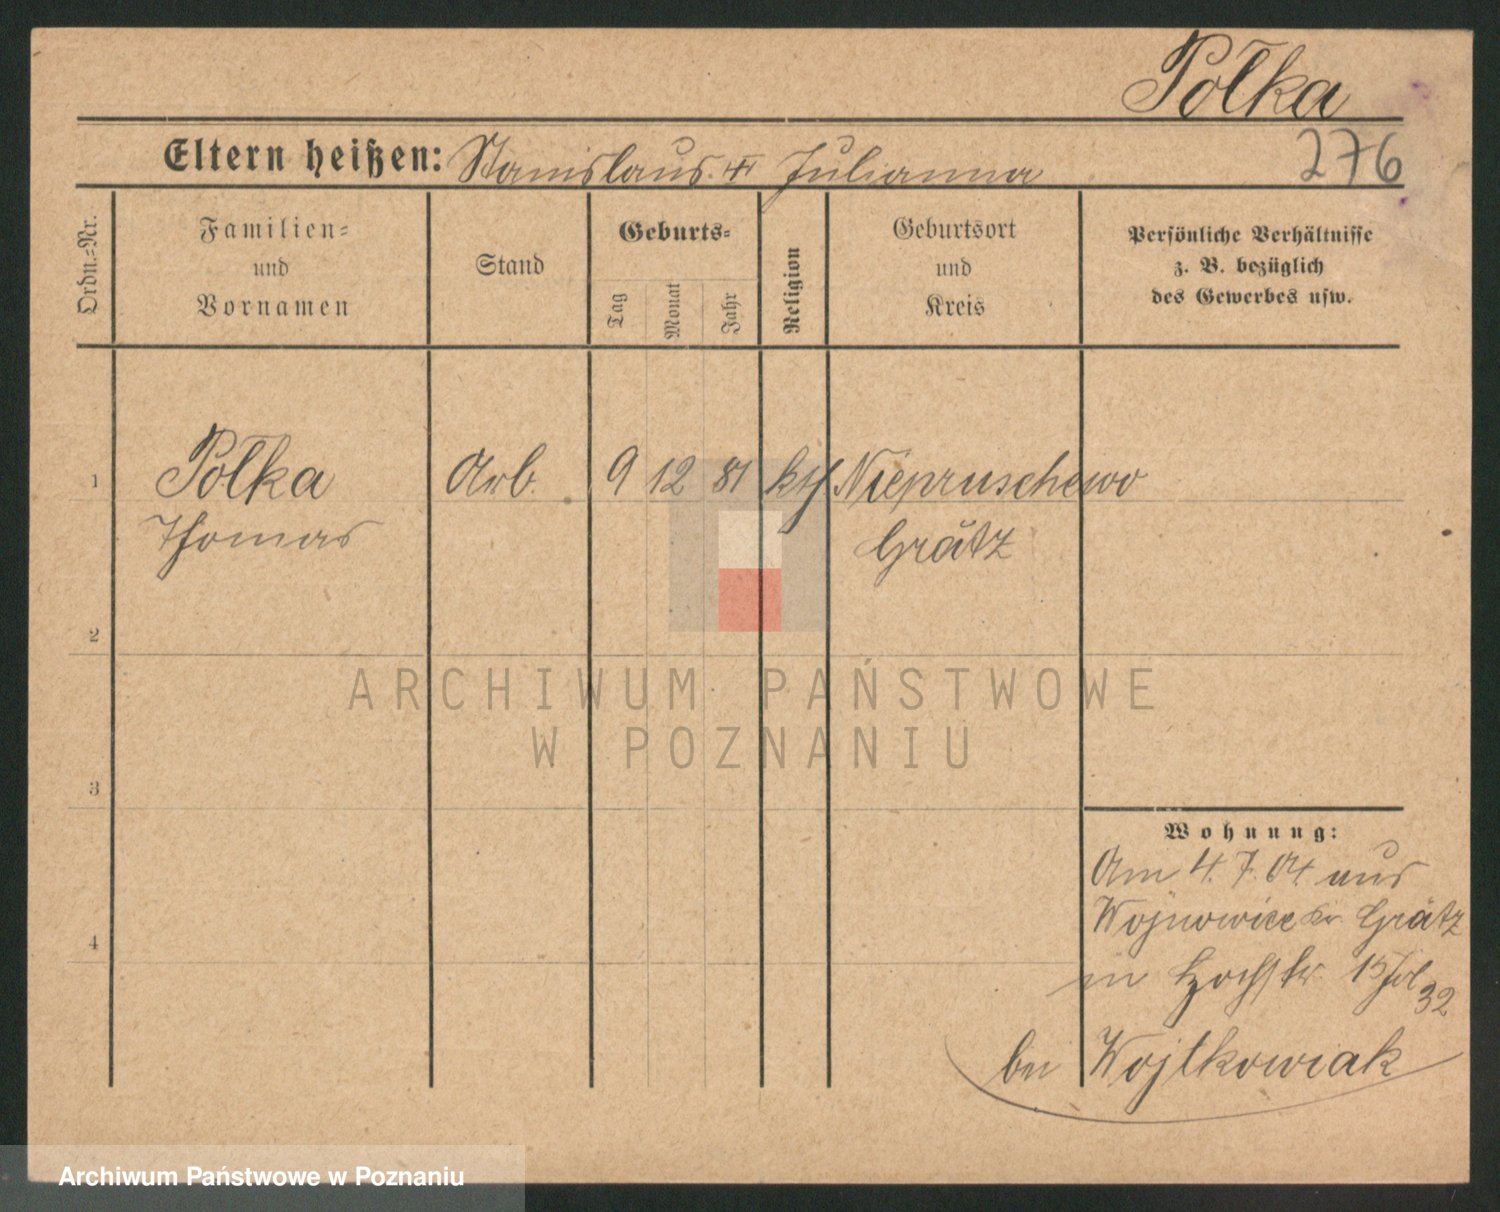 Połka
Eltern heißen: Stanislaus + Julianna
276
Ordn.-Nr.
Familien-
und
Vornamen
Stand
Geburts-
Tag
Monat
Jahr
Religion
Geburtsort
und
Kreis
Persönliche Verhältnisse
z. B. bezüglich
des Gewerbes usw.
1 Połka Arb. 9 12 81 kth Niepruschewo
Thomas Grätz
2
3
4
Wohnung:
Am 4. 7. 04 aus
Wojnowice Kr. Grätz
in
bei Wojtkowiak
ARCHIWUM PAŃSTWOWE
W POZNANIU
Archiwum Państwowe w Poznaniu